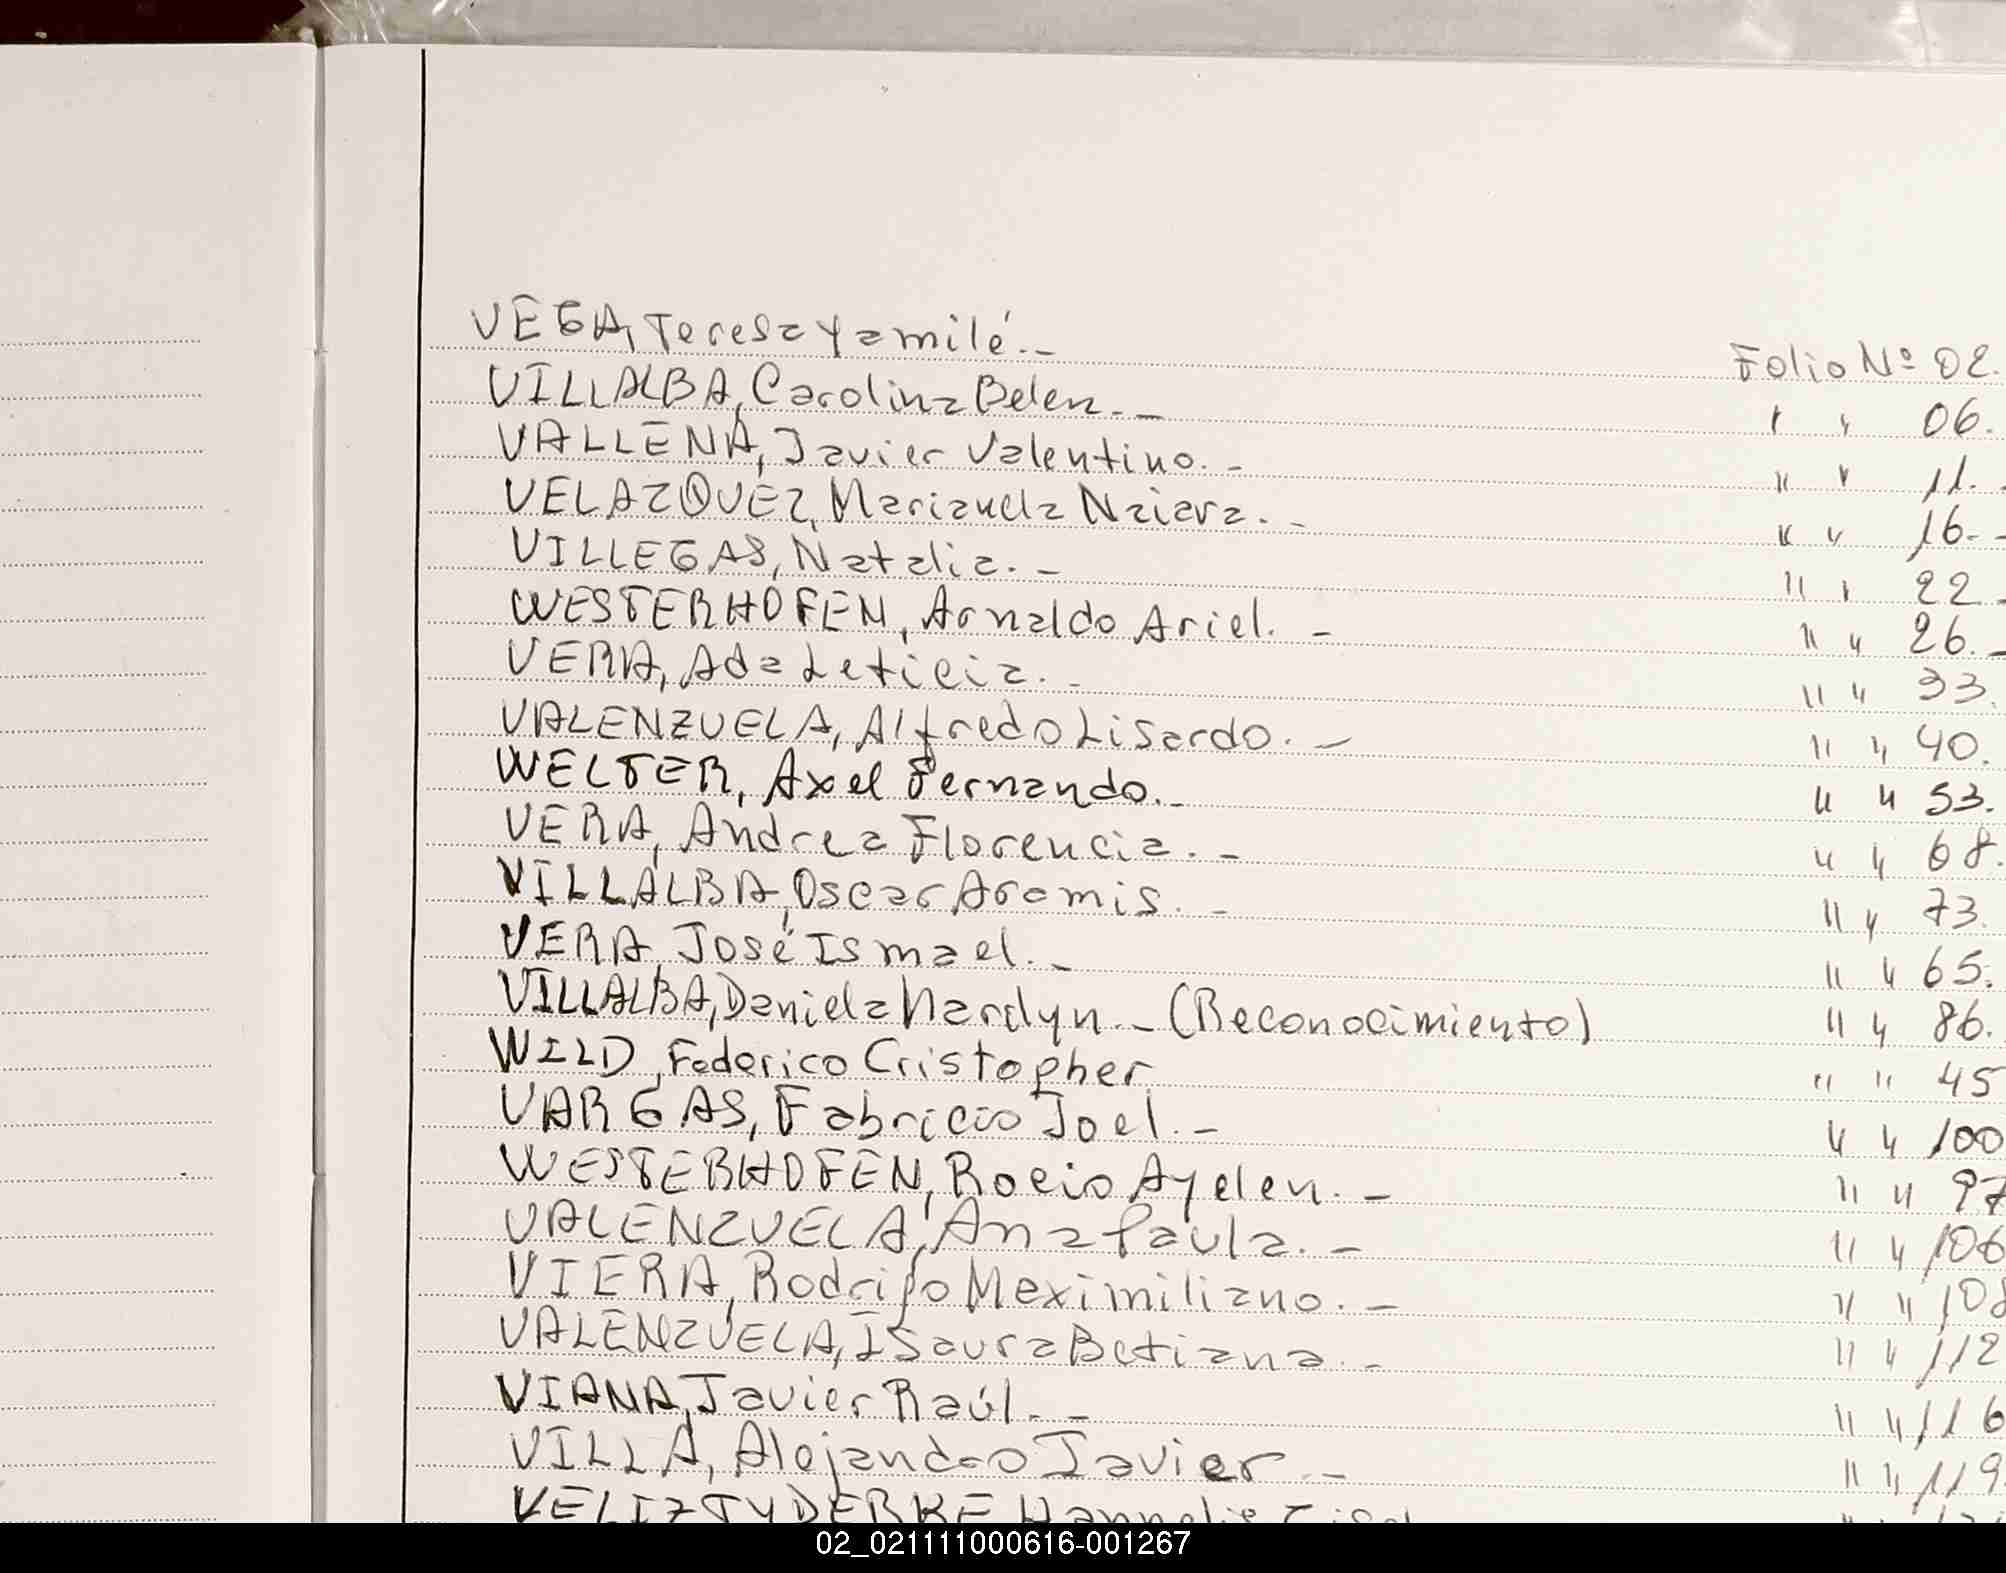 VEGA, Teresa Yamilé.- Folio Nº 02.
VILLALBA, Carolina Belen.- " " 06.
VALLENA, Javier Valentino.- " " 11.-
VELAZQUEZ, Marianela Naiara.- " " 16.-
VILLEGAS, Natalia.- " " 22.-
WESTERHOFEN, Arnaldo Ariel.- " " 26.-
VERA, Ada Leticia.- " " 33.
VALENZUELA, Alfredo Lisardo.- " " 40.
WELTER, Axel Fernando.- " " 53.
VERA, Andrea Florencia.- " " 68.
VILLALBA, Oscar Aramis.- " " 73.
VERA, José Ismael.- " " 65.
VILLALBA, Daniela Nardyn.- (Reconocimiento) " " 86.
WILD, Federico Cristopher " " 45
VARGAS, Fabricio Joel.- " " 100
WESTERHOFEN, Rocio Ayelen.- " " 97
VALENZUELA, Ana Paula.- " " 106
VIERA, Rodrigo Maximiliano.- " " 108
VALENZUELA, Isaura Betiana.- " " 112
VIANA, Javier Raúl.- " " 116
VILLA, Alejandro Javier.- " " 119
02_021111000616-001267